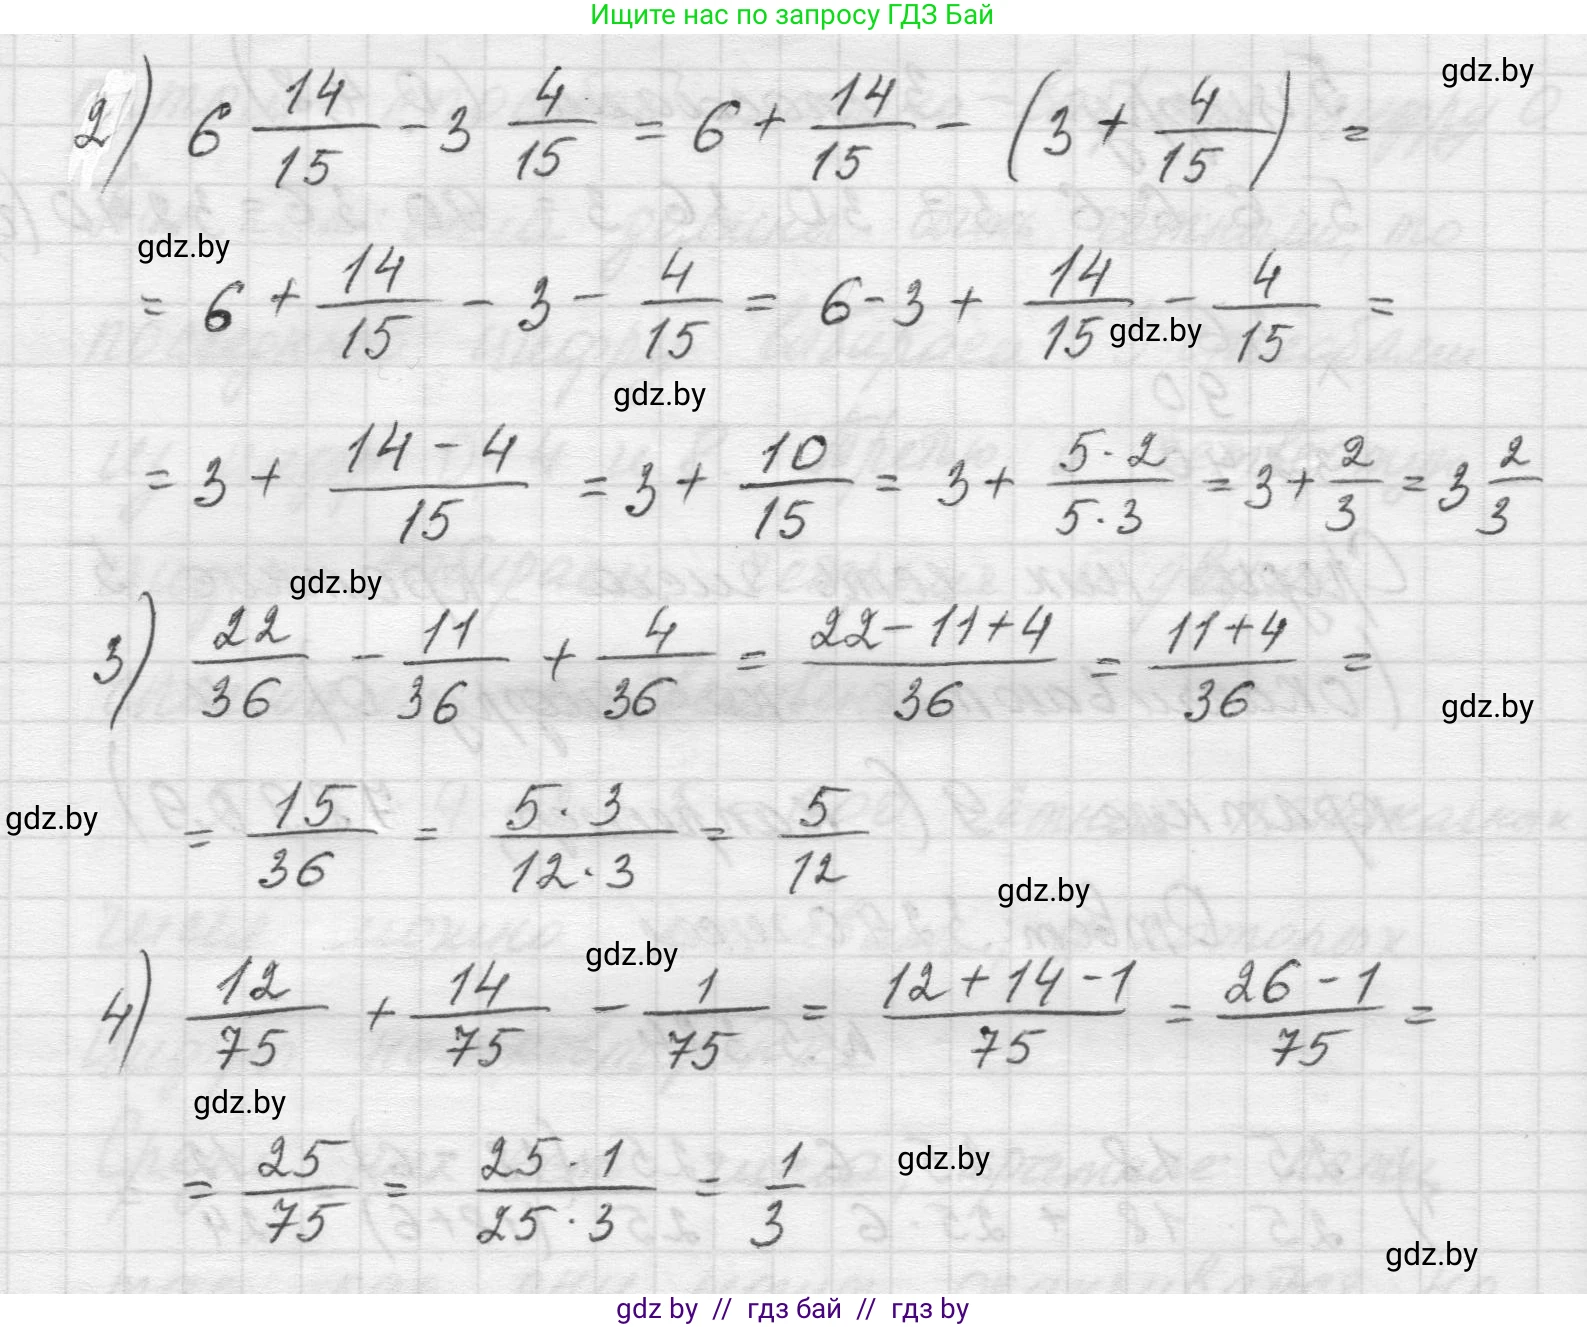 Ищите нас по запросу ГДЗ Бай
gdz.by
2) 6 14/15 - 3 4/15 = 6 + 14/15 - (3 + 4/15) =
gdz.by
= 6 + 14/15 - 3 - 4/15 = 6 - 3 + 14/15 - 4/15 =
gdz.by
gdz.by
= 3 + (14 - 4)/15 = 3 + 10/15 = 3 + (5·2)/(5·3) = 3 + 2/3 = 3 2/3
gdz.by
3) 22/36 - 11/36 + 4/36 = (22 - 11 + 4)/36 = (11 + 4)/36 =
gdz.by
gdz.by
= 15/36 = (5·3)/(12·3) = 5/12
gdz.by
gdz.by
4) 12/75 + 14/75 - 1/75 = (12 + 14 - 1)/75 = (26 - 1)/75 =
gdz.by
= 25/75 = (25·1)/(25·3) = 1/3
gdz.by
gdz.by
gdz by // гдз бай // гдз by